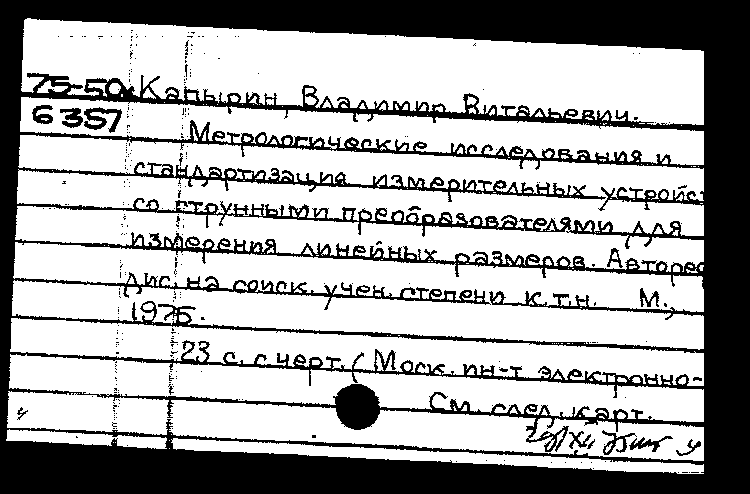 75-50 Капырин, Владимир Витальевич.
6357
Метрологические исследования и
стандартизация измерительных устройст
со струнными преобразователями для
измерения линейных размеров. Авторес
дис. на соиск. учен. степени к.т.н. М.,
1975.
23 с. с черт. (Моск. ин-т электронно-
См. след. карт.